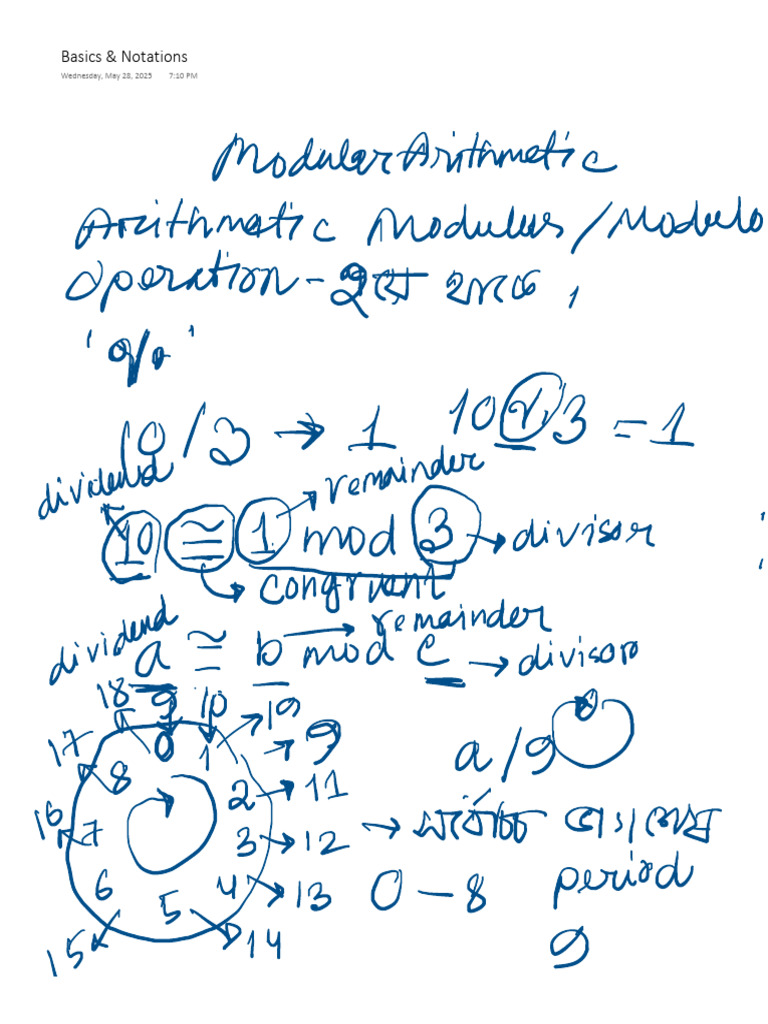 Basics & Notations
Wednesday, May 28, 2025 7:10 PM
Modular Arithmetic
Arithmatic Modulus / Modulo
Operation -
'%'
10 / 3 → 1 10 % 3 = 1
dividend → remainder
10 ≅ 1 mod 3 → divisor
→ congruent
dividend → remainder
a ≅ b mod c → divisor
18 9 10 19
17 0 1 → 9 a / 9 0
8 2 → 11
16 7 3 → 12 → ভাগশেষ
6 4 → 13 0 - 8 period
5 9
15 14